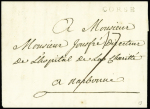 A Monsieur
Monsieur Directeur
de L'hopital de La Charité
a narbonne